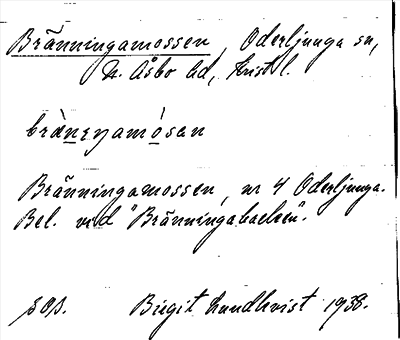 Bränningamossen, Oderljunga sn,
N. Åsbo hd, Krist l.
brànıŋamòsan
Bränningamossen, nr 4 Oderljunga.
Bel. vid "Bränningabacken".
SOS. Birgit Lundkvist 1938.